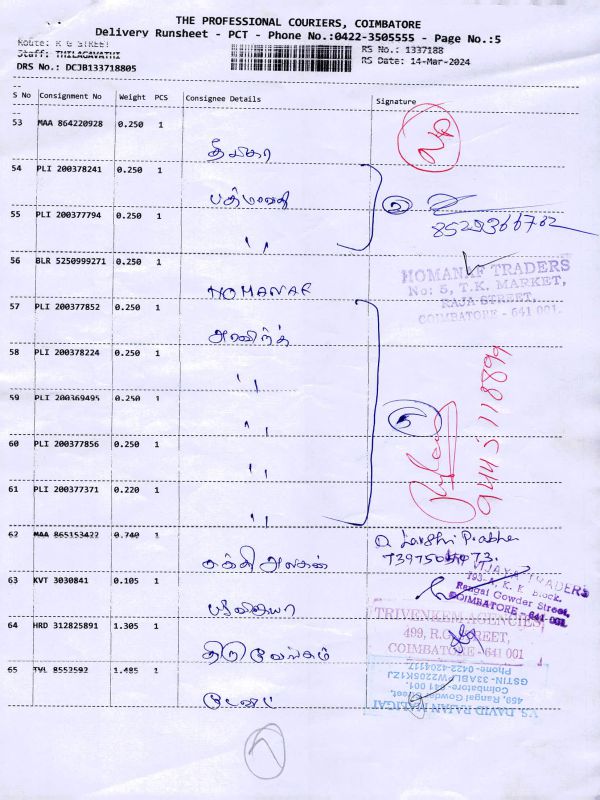 THE PROFESSIONAL COURIERS, COIMBATORE
Delivery Runsheet - PCT - Phone No.:0422-3505555 - Page No.:5
Route: R G STREET
Staff: THILAGAVATHI
DRS No.: DCJB133718805
RS No.: 1337188
RS Date: 14-Mar-2024
S No Consignment No Weight PCS Consignee Details Signature
53 MAA 864220928 0.250 1
54 PLI 200378241 0.250 1
பத்மாவதி
2
55 PLI 200377794 0.250 1
" 8529366762
56 BLR 5250999271 0.250 1
HOMANAF
HOMANAF TRADERS
No: 5, T.K. MARKET,
RAJA STREET,
COIMBATORE - 641 001.
57 PLI 200377852 0.250 1
அரவிந்த்
58 PLI 200378224 0.250 1
"
59 PLI 200369495 0.250 1
"
5
9445118899
60 PLI 200377856 0.250 1
"
61 PLI 200377371 0.220 1
"
62 MAA 865153422 0.740 1
சக்தி அலகன்
63 KVT 3030841 0.105 1
VIJAYA TRADERS
793-A, K. K. Block,
Rangai Gowder Street,
COIMBATORE - 641 001.
64 HRD 312825891 1.305 1
திருவேங்கடம்
TRIVENKEM AGENCIES,
499, R.G. STREET,
COIMBATORE - 641 001
65 TVL 8552592 1.485 1
டேவிட்
V.S. DAVID RAJAN NADAR
469, Rangai Gowder Street,
Coimbatore - 641 001.
GSTIN- 33ABLPW2205K1ZJ
Phone- 0422-4204117